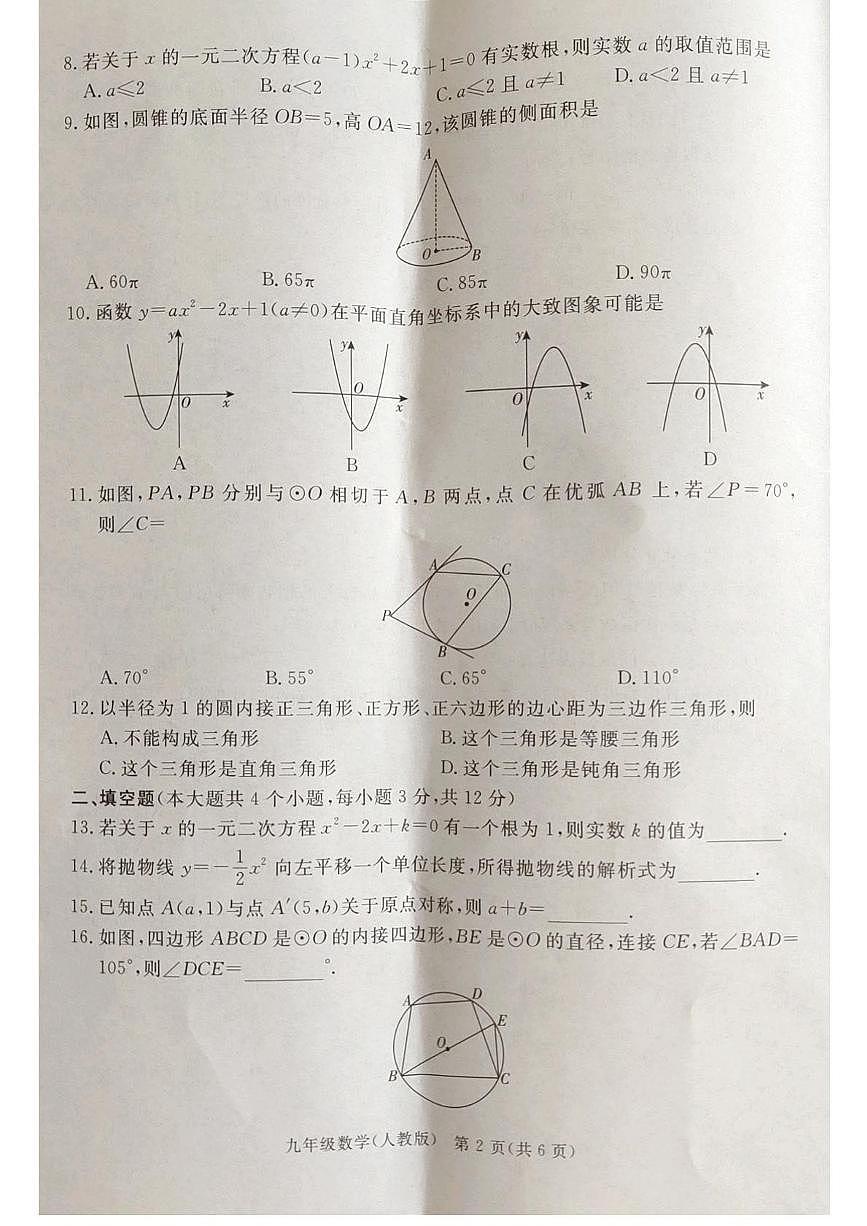 8.若关于 x 的一元二次方程(a-1)x²+2x+1=0 有实数根,则实数 a 的取值范围是
A.a≤2 B.a<2 C.a≤2 且 a≠1 D.a<2 且 a≠1
9.如图,圆锥的底面半径 OB=5,高 OA=12,该圆锥的侧面积是
A
O B
A.60π B.65π C.85π D.90π
10.函数 y=ax²-2x+1(a≠0)在平面直角坐标系中的大致图象可能是
y y y y
O x O x O x O x
A B C D
11.如图,PA,PB 分别与⊙O 相切于 A,B 两点,点 C 在优弧 AB 上,若∠P=70°,
则∠C=
A C
O
P
B
A.70° B.55° C.65° D.110°
12.以半径为 1 的圆内接正三角形、正方形、正六边形的边心距为三边作三角形,则
A.不能构成三角形 B.这个三角形是等腰三角形
C.这个三角形是直角三角形 D.这个三角形是钝角三角形
二、填空题(本大题共 4 个小题,每小题 3 分,共 12 分)
13.若关于 x 的一元二次方程 x²-2x+k=0 有一个根为 1,则实数 k 的值为______.
14.将抛物线 y=-1/2x² 向左平移一个单位长度,所得抛物线的解析式为______.
15.已知点 A(a,1)与点 A′(5,b)关于原点对称,则 a+b=______.
16.如图,四边形 ABCD 是⊙O 的内接四边形,BE 是⊙O 的直径,连接 CE,若∠BAD=
105°,则∠DCE=______°.
A D
E
O
B C
九年级数学(人教版) 第 2 页(共 6 页)